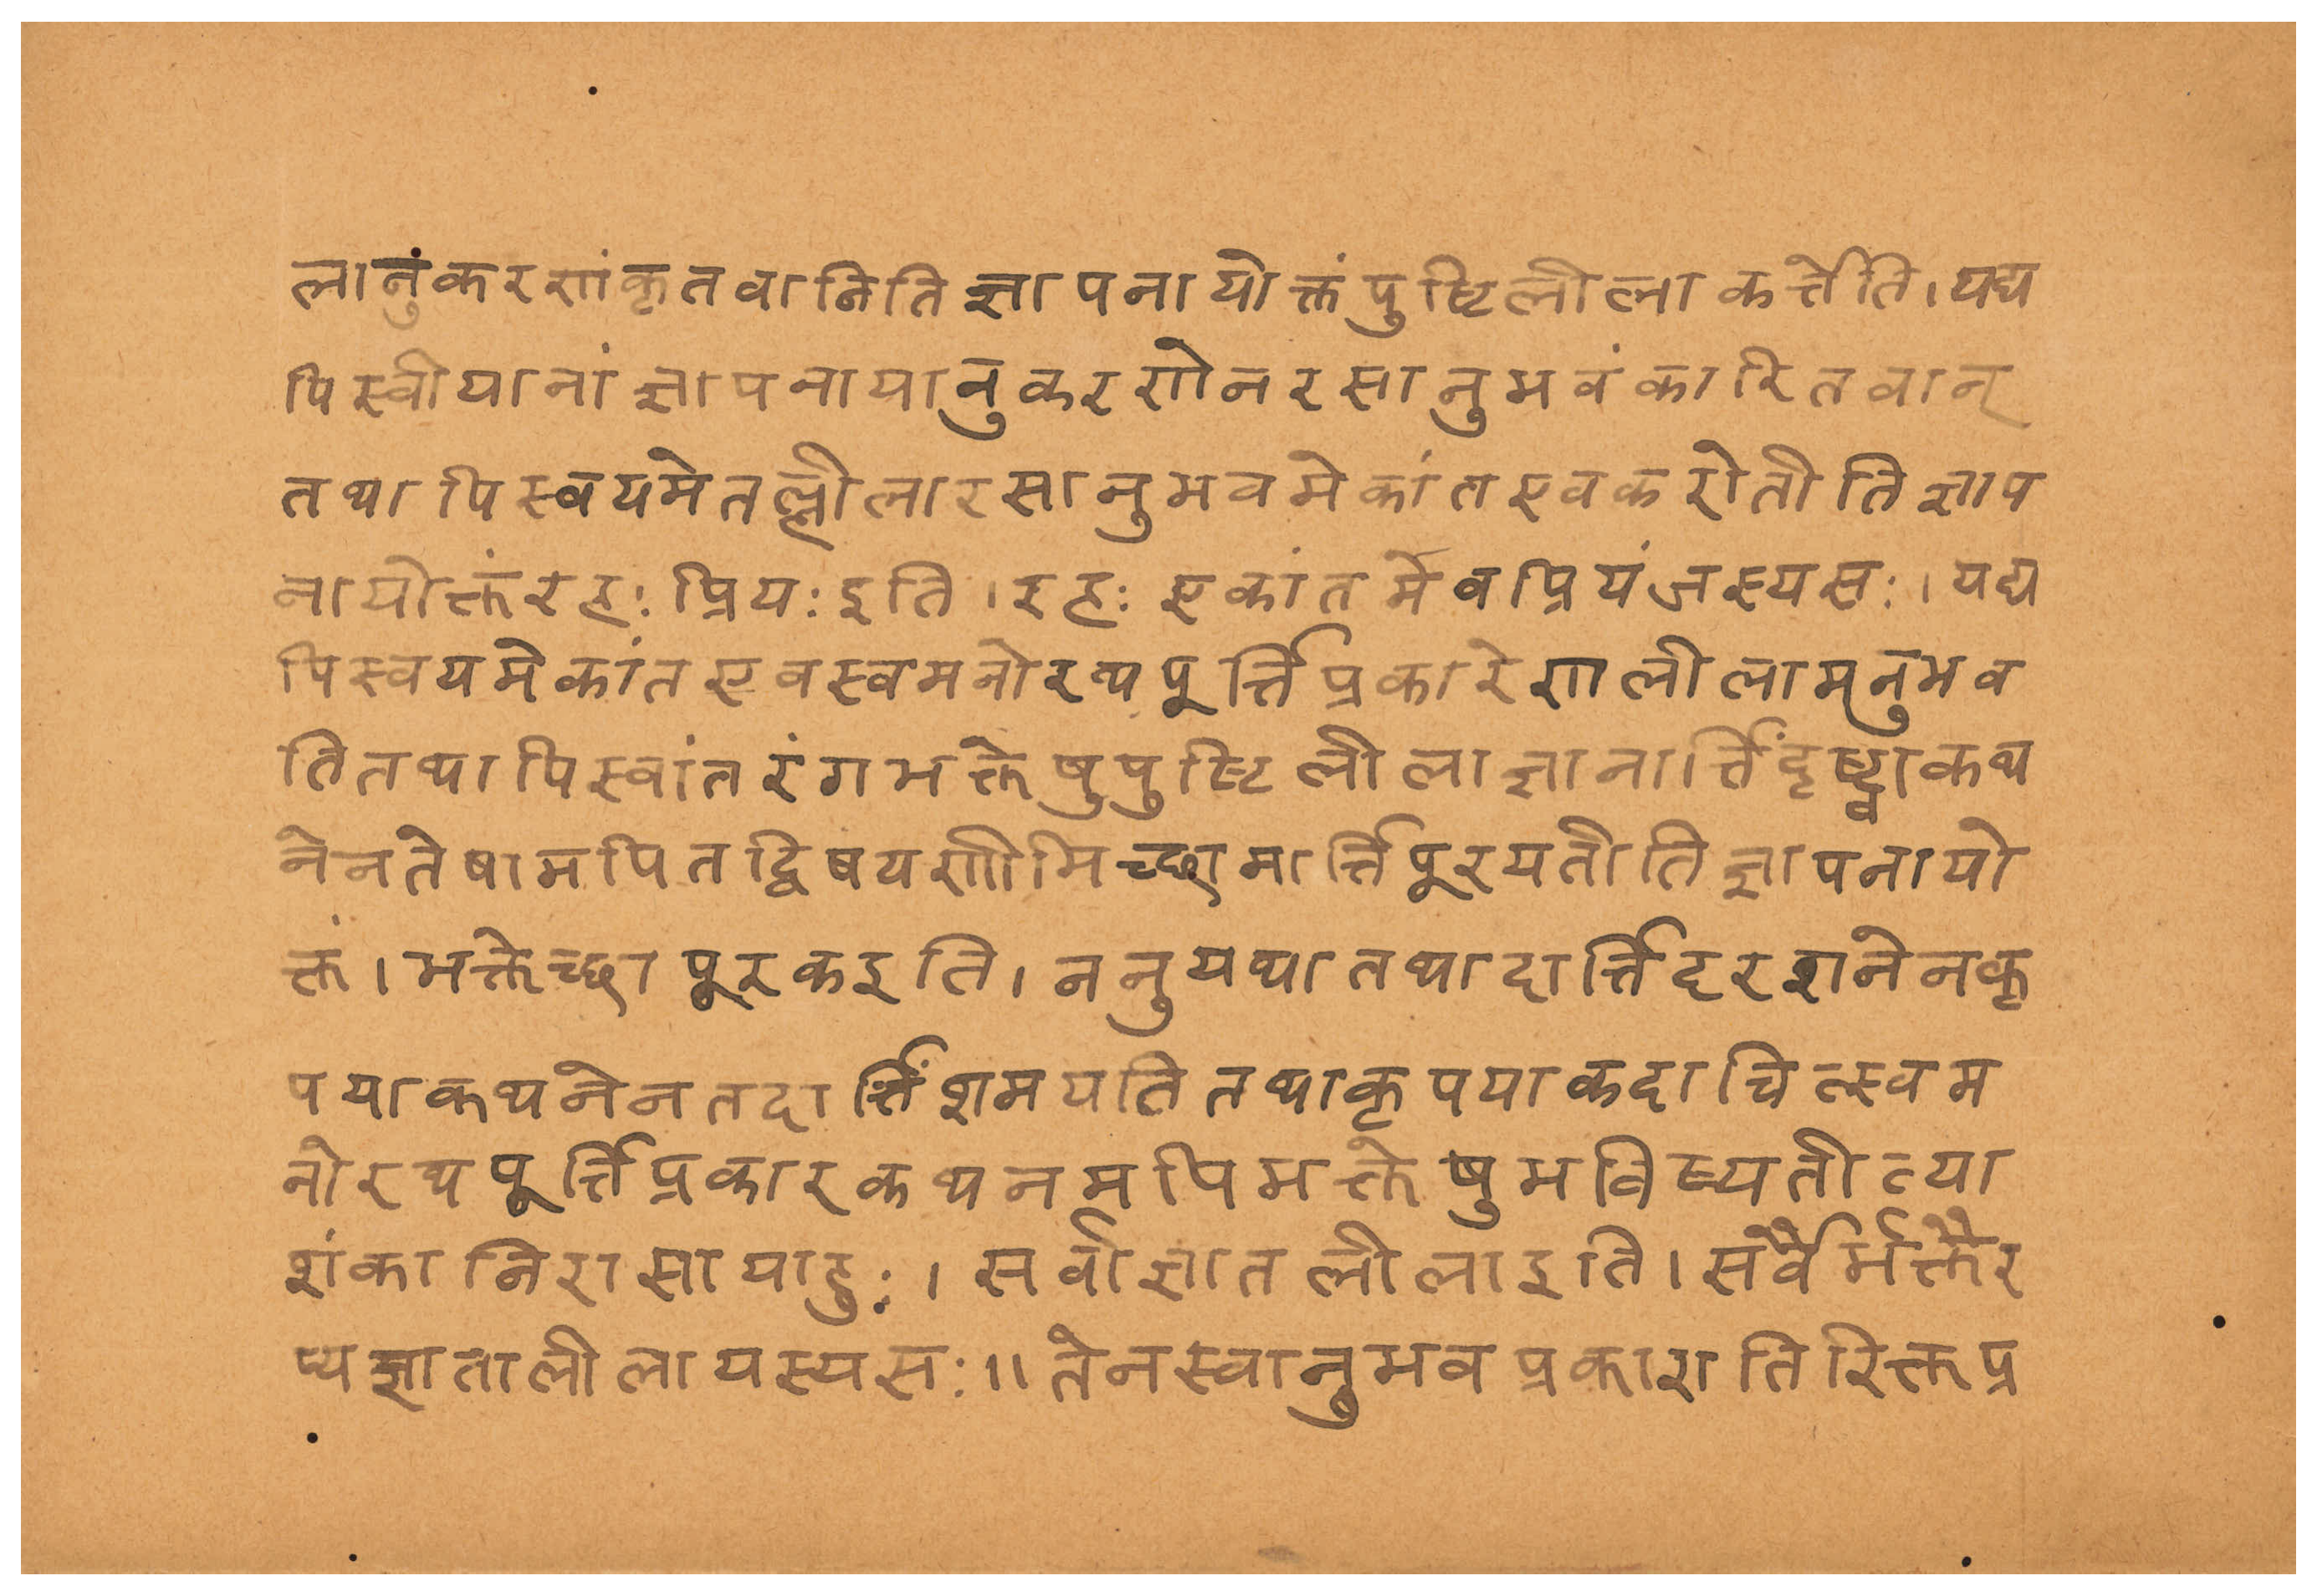 लानुंकरणंकृतवानितिज्ञापनायोक्तंपुष्टिलीलाकर्त्तेति।यद्य
पिस्वीयानांज्ञापनायानुकरणेनरसानुभवंकारितवान्
तथापिस्वयमेतल्लीलारसानुभवमेकांतएवकरोतीतिज्ञाप
नायोक्तंरहःप्रियःइति।रहःएकांतमेवप्रियंजस्यसः।यद्य
पिस्वयमेकांतएवस्वमनोरथपूर्त्तिप्रकारेणलीलामनुभव
तितथापिस्वांतरंगभक्तेषुपुष्टिलीलाज्ञानार्त्तिंदृष्ट्वाकथ
नेनतेषामपितद्विषयणीमिच्छामार्त्तिपूरयतीतिज्ञापनायो
क्तं।भक्तेच्छापूरकइति।ननुयथातथादार्त्तिदरशनेनकृ
पयाकथनेनतदार्त्तिंशमयतितथाकृपयाकदाचित्स्वम
नोरथपूर्त्तिप्रकारकथनमपिभक्तेषुभविष्यतीत्या
शंकानिरासायाहुः।सर्वाज्ञातलीलाइति।सर्वैर्भक्तैर
प्यज्ञातालीलायस्यसः॥तेनस्वानुभवप्रकाशतिरिक्तप्र